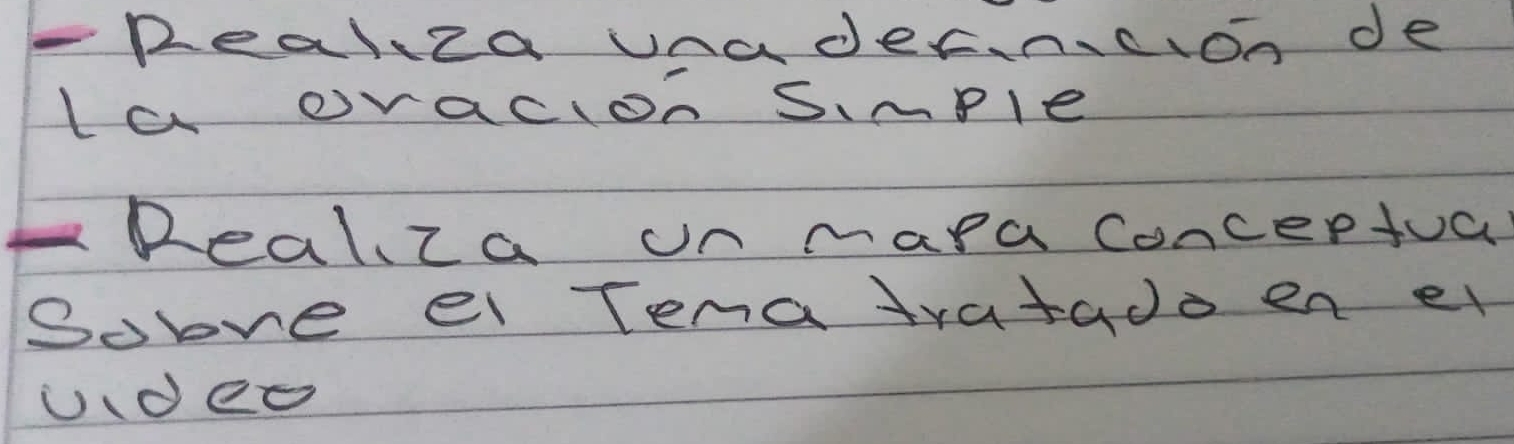 - Realiza una definición de
la oración simple
- Realiza un mapa conceptual
Sobre el Tema tratado en el
video